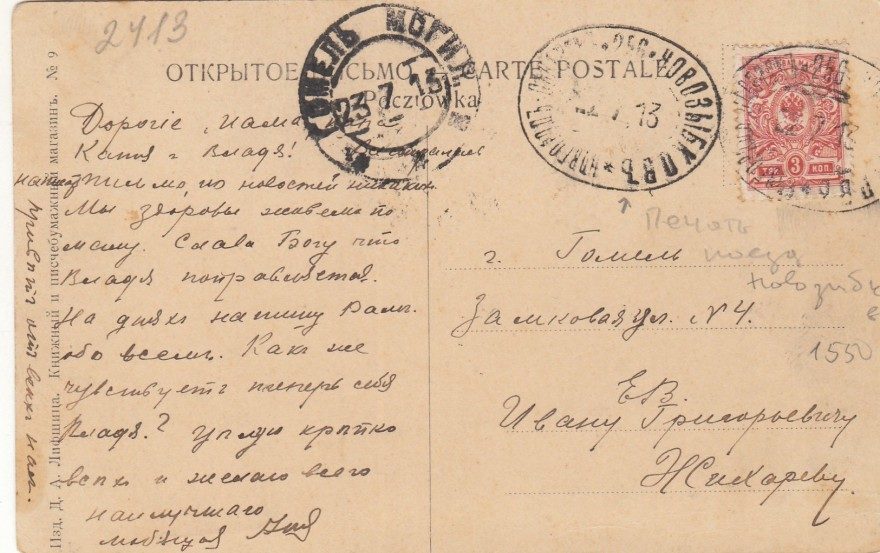 2413
ОТКРЫТОЕ ПИСЬМО — CARTE POSTALE
Pocztówka
ГОМЕЛЬ МОГИЛ.
23 7 13
НОВОЗЫБКОВЪ
2 7 13
3 КОП.
Дорогіе мама
Катя и Владя!
письмо, но новостей никаких
Мы здоровы живем по
малу. Слава Богу что
Владя поправляется.
На днях напишу Вам
обо всем. Как же
чувствует теперь себя
Владя? Целую крепко
всех и желаю всего
наилучшаго
любящая
Привет от всех нас.
Изд. Д. А. Лифшица. Книжный и писчебумажный магазинъ. № 9
↑
Печать
поезд
Новозыбк
в
1550
г. Гомель
Замковая ул. N 4.
Е.В.
Ивану Григорьевичу
Жихареву